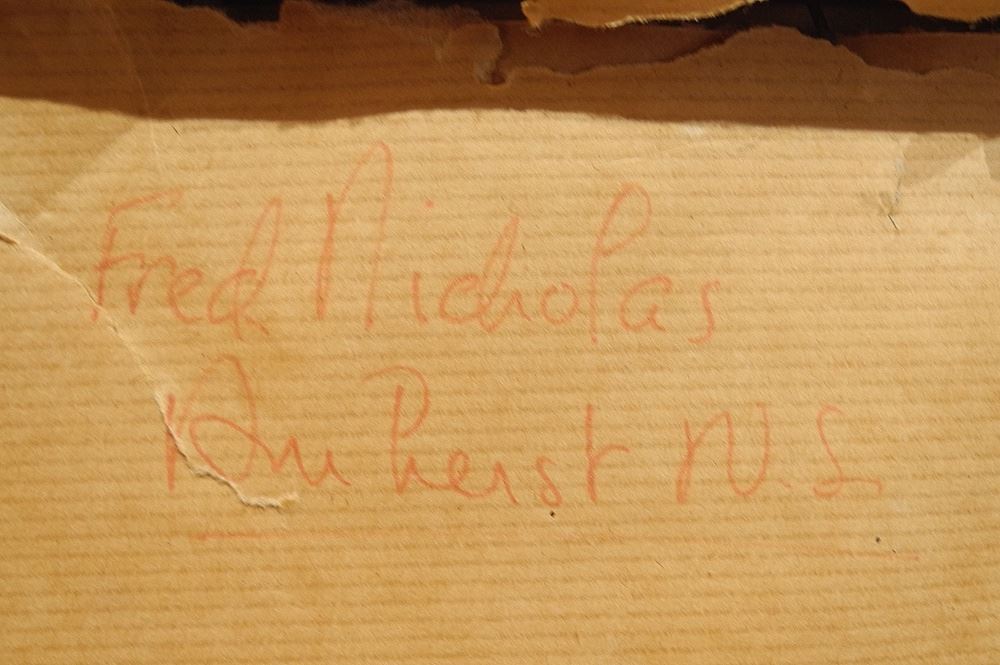 Fred Nicholas
Amherst N.S.